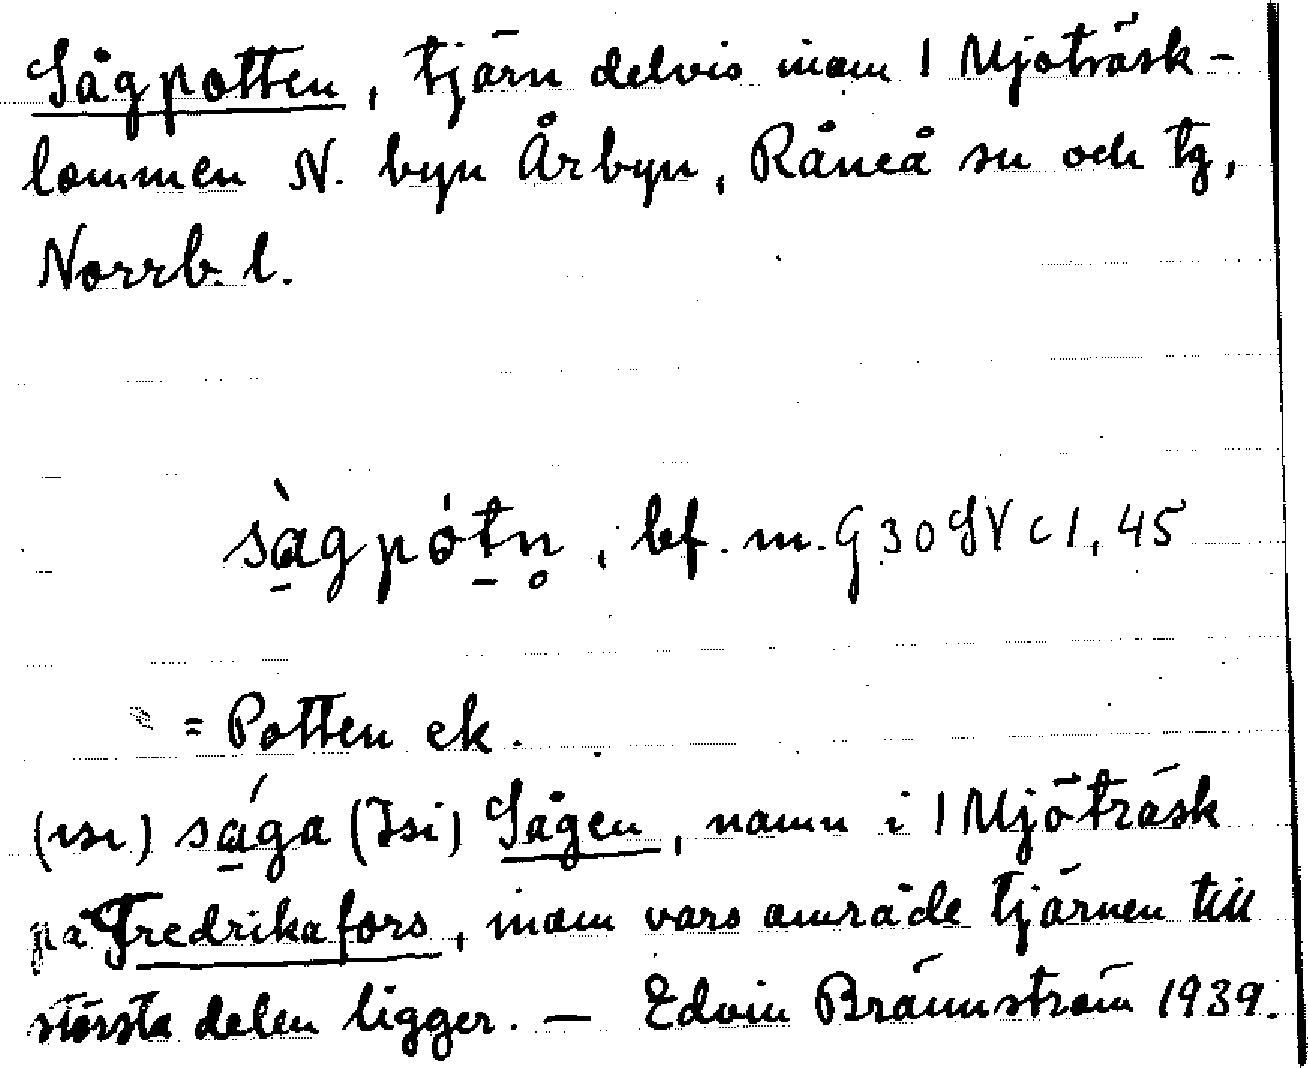 Sågpotten, tjärn delvis inom 1 Mjöträsk-
lommen N. byn Årbyn, Råneå sn och tg,
Norrb. l.
sàgpótn̥, bf. m. G 30 SV c 1, 45
= Potten ek.
(ısı) sága (Isi) Sågen, namn i 1 Mjöträsk
på Fredrikafors, inom vars område tjärnen till
största delen ligger. — Edvin Brännström 1939.